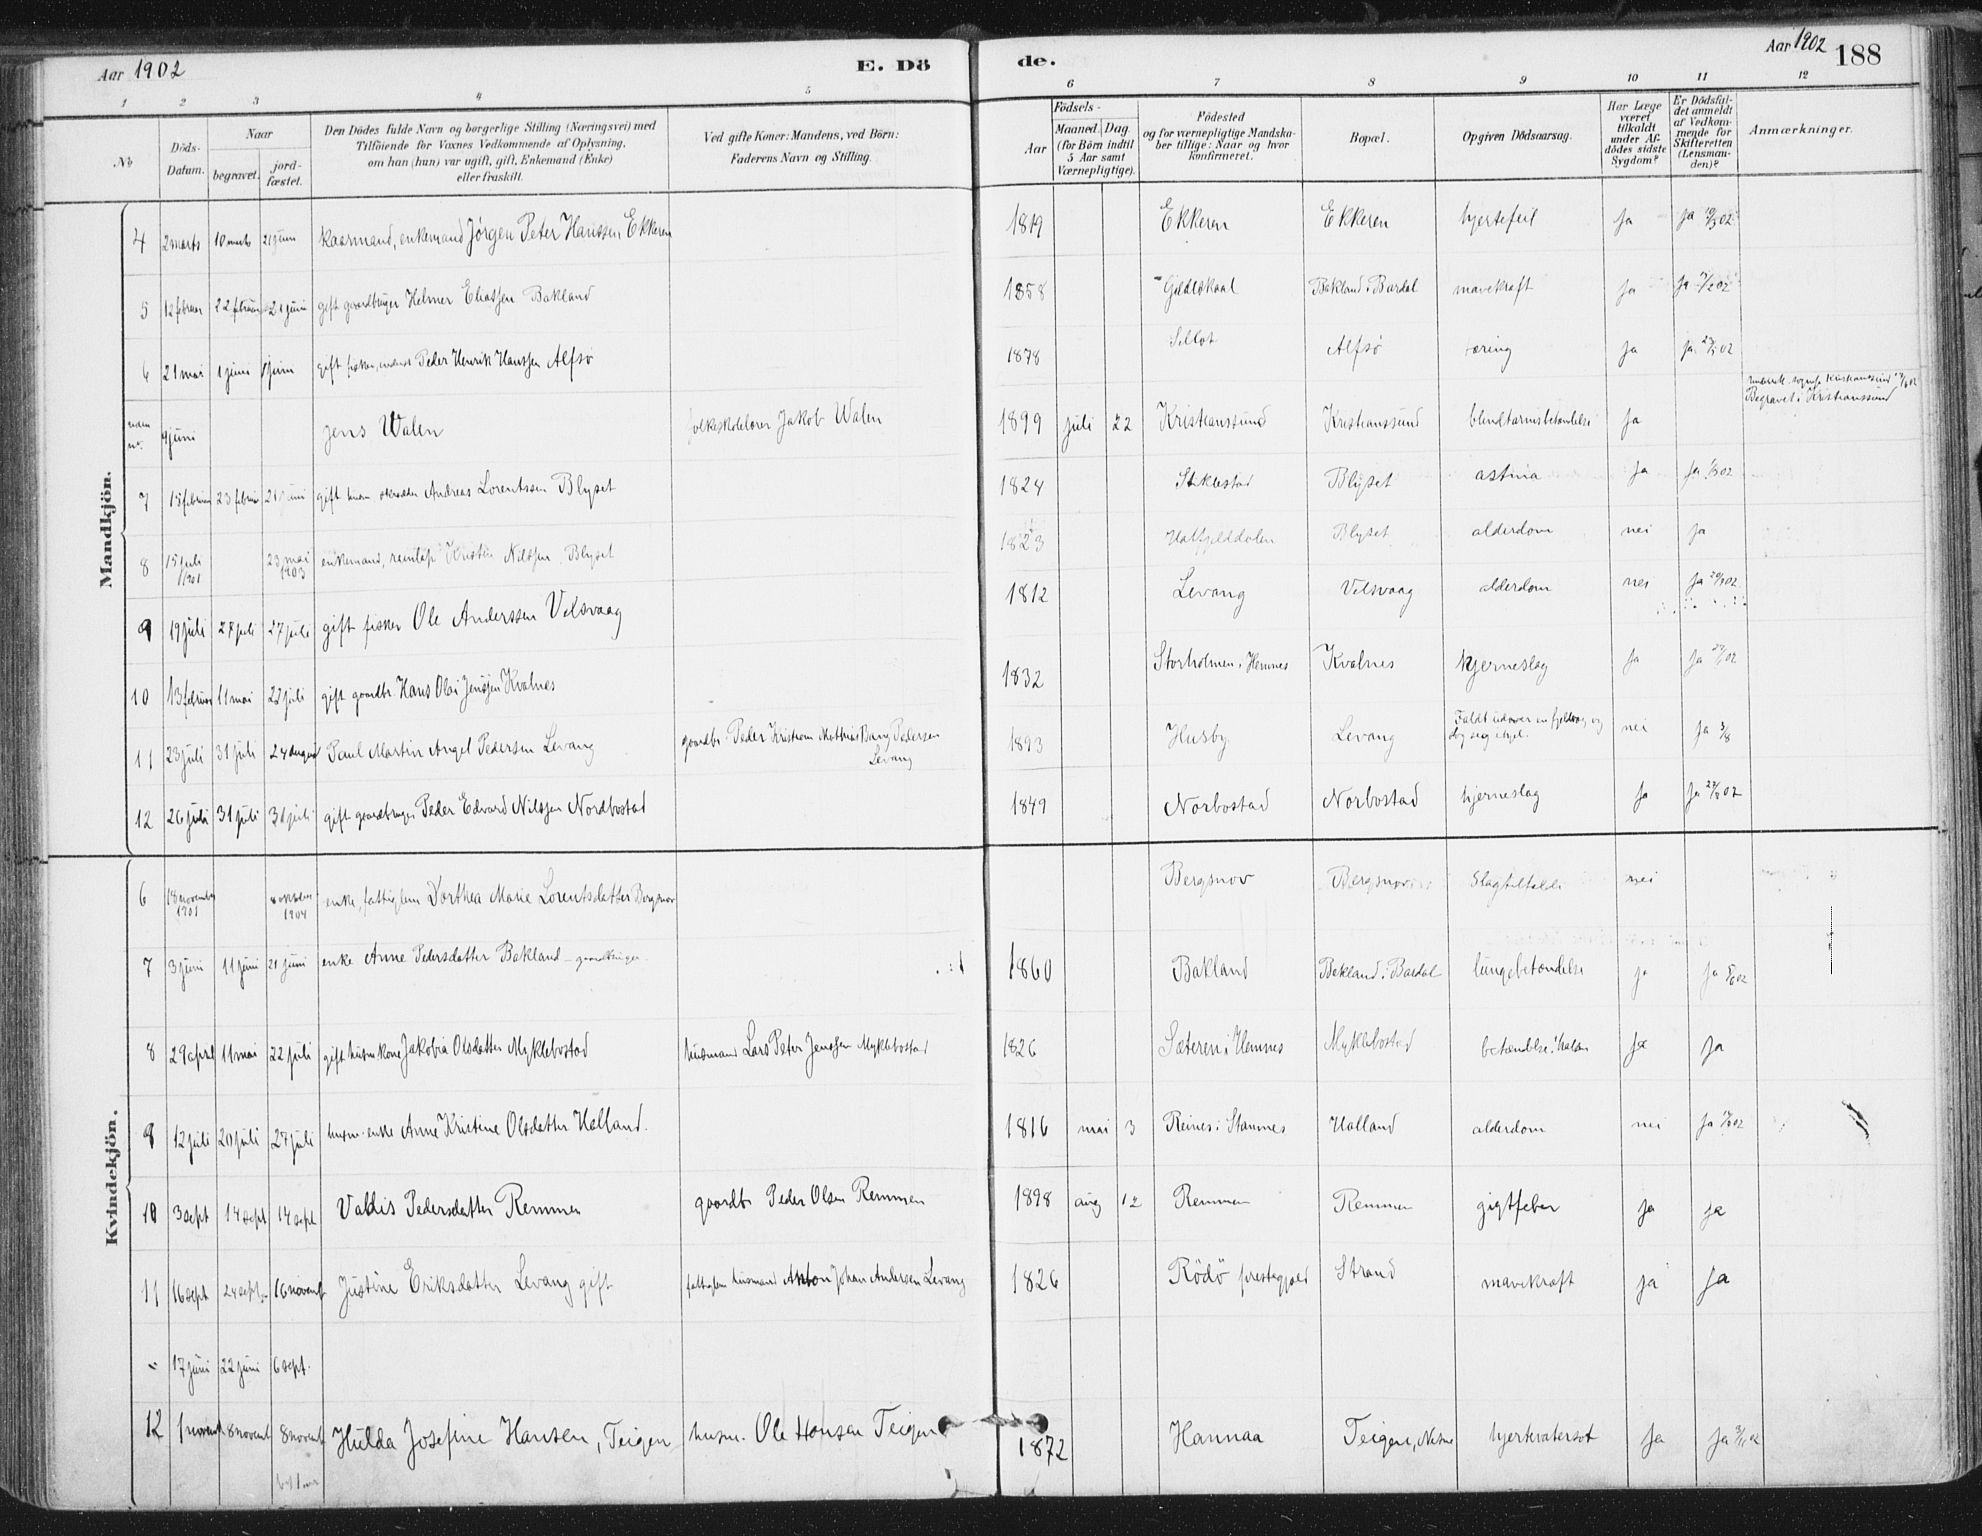 Aar 1902
E. Dö
de.
Aar 1902
188
1 2 3 4 5 6 7 8 9 10 11 12
No
Döds-Datum.
Naar
begravet.
jord-fæstet.
Den Dödes fulde Navn og borgerlige Stilling (Næringsvei) med
Tilföiende for Voxnes Vedkommende af Oplysning,
om han (hun) var ugift, gift, Enkemand (Enke)
eller fraskilt.
Ved gifte Koner: Mandens, ved Börn:
Faderens Navn og Stilling.
Födsels-
Aar
Maaned. Dag.
(for Börn indtil
5 Aar samt
Værnepligtige).
Födested
og for værnepligtige Mandska-
ber tillige: Naar og hvor
konfirmeret.
Bopæl.
Opgiven Dödsaarsag.
Har Læge
været
tilkaldt
under Af-
dödes sidste
Sygdom?
Er Dödsfal-
det anmeldt
af Vedkom-
mende for
Skifteretten
(Lensman-
den)?
Anmærkninger.
Mandkjön.
4 2 marts 10 marts 21 juni kaarmand, enkemand Jørgen Peter Hanssen Ekkeren 1819 Ekkeren Ekkeren hjertefeil ja ja
5 12 februar 22 februar 21 juni gift gaardbruger Helmer Eliassen Bakland 1858 Gildeskaal Bakland i Bardal mavekræft ja ja
6 21 mai 1 juni juni gift fisker, Peder Henrik Hanssen Alfsø 1878 Alfsø tæring ja ja
uden nr. 4 juni Jens Walen folkeskolelærer Jakob Walen 1899 juli 22 Kristianssund Kristianssund blindtarmsbetændelse ja Begravet i Kristianssund
7 15 februar 23 februar 21 juni gift husm. Andreas Lorentssen Blyset 1824 Stiklestad Blyset astma ja ja
8 15 juli 1901 23 mai 1903 enkemand, Kristen Nilssen Blyset 1823 Hatfjelddalen Blyset alderdom nei ja
9 19 juli 27 juli 27 juli gift fisker Ole Anderssen Velsvaag 1812 Levang Velsvaag alderdom nei ja
10 13 februar 11 mai 22 juli gift gaardbr. Hans Olai Jenssen Kvalnes 1832 Storholmen i Hemnes Kvalnes hjerneslag ja ja
11 23 juli 31 juli 24 august Paul Martin Angel Pedersen Levang gaardbr. Peder Kristian Mathias Bang Pedersen Levang 1893 Husby Levang Faldt udover en fjeldvæg og slog seg ihjel. nei ja
12 26 juli 31 juli 31 juli gift gaardbruger Peder Edvard Nilssen Nordbostad 1849 Norbostad Norbostad hjerneslag ja ja
Kvindekjön.
6 18 november 1901 1904 enke, fattiglem Dorthea Marie Lorentsdatter Bergsnov Bergsnov Bergsnov Slagtilfælde nei
7 3 juni 11 juni 21 juni enke Anne Pedersdatter Bakland - gaardbruger 1860 Bakland Bakland i Bardal lungebetændelse ja ja
8 29 april 11 mai 22 juli gift husm. kone Jakobia Olsdatter Myklebostad husmand Lars Peter Jenssen Myklebostad 1826 Sæteren i Hemnes Myklebostad betændelse i halsen ja ja
9 12 juli 20 juli 27 juli husm. enke Anne Kristine Olsdatter Halland. 1816 mai 3 Reines i Stamnes Halland alderdom nei ja
10 3 sept 14 sept 14 sept Valdis Pedersdatter Remmen gaardbr Peder Olsen Remmen 1898 aug 12 Remmen Remmen gigtfeber ja ja
11 16 sept 24 sept 16 novemb Justine Eriksdatter Levang gift fattiglem husmand Anton Johan Andersen Levang 1826 Rödö prestegjeld Strand mavekræft ja ja
" 17 juni 22 juni 6 sept.
12 1 novemb 8 novemb 8 novemb Hulda Josefine Hansen, Teigen husm. Ole Hansen Teigen 1872 Hannaa Teigen, Nesne hjertevatersot ja ja